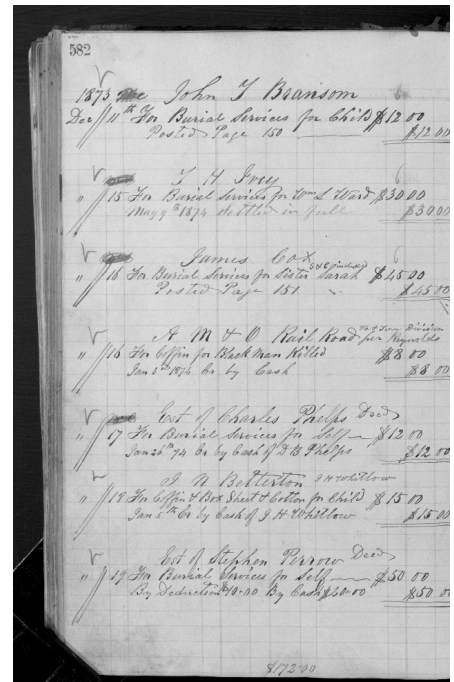 582
1873 John T Bransom
Dec 11th For Burial Services for Child $12 00
Posted Page 150 $12 00
T H Ivey
" 15 For Burial Services for Wm S Ward $30 00
May 9th 1874 Settled in full $30 00
James Cox
" 15 For Burial Services for Sister Sarah $45 00
Posted Page 151 $45 00
A M & O Rail Road per Reynolds
" 16 For Coffin for Black Man Killed $8 00
Jan 3rd 1874 Cr by Cash $8 00
Est of Charles Phelps Decd
" 17 For Burial Services for Self $12 00
Jan 26 74 Cr by Cash of D B Phelps $12 00
J N Betterton J H Whitlow
" 18 For Coffin & Box Sheet & Cotton for Child $15 00
Jan 5th Cr by Cash of J H Whitlow $15 00
Est of Stephen Perrow Decd
" 19 For Burial Services for Self $50 00
By Deduction $10.00 By Cash $40.00 $50 00
$172.00